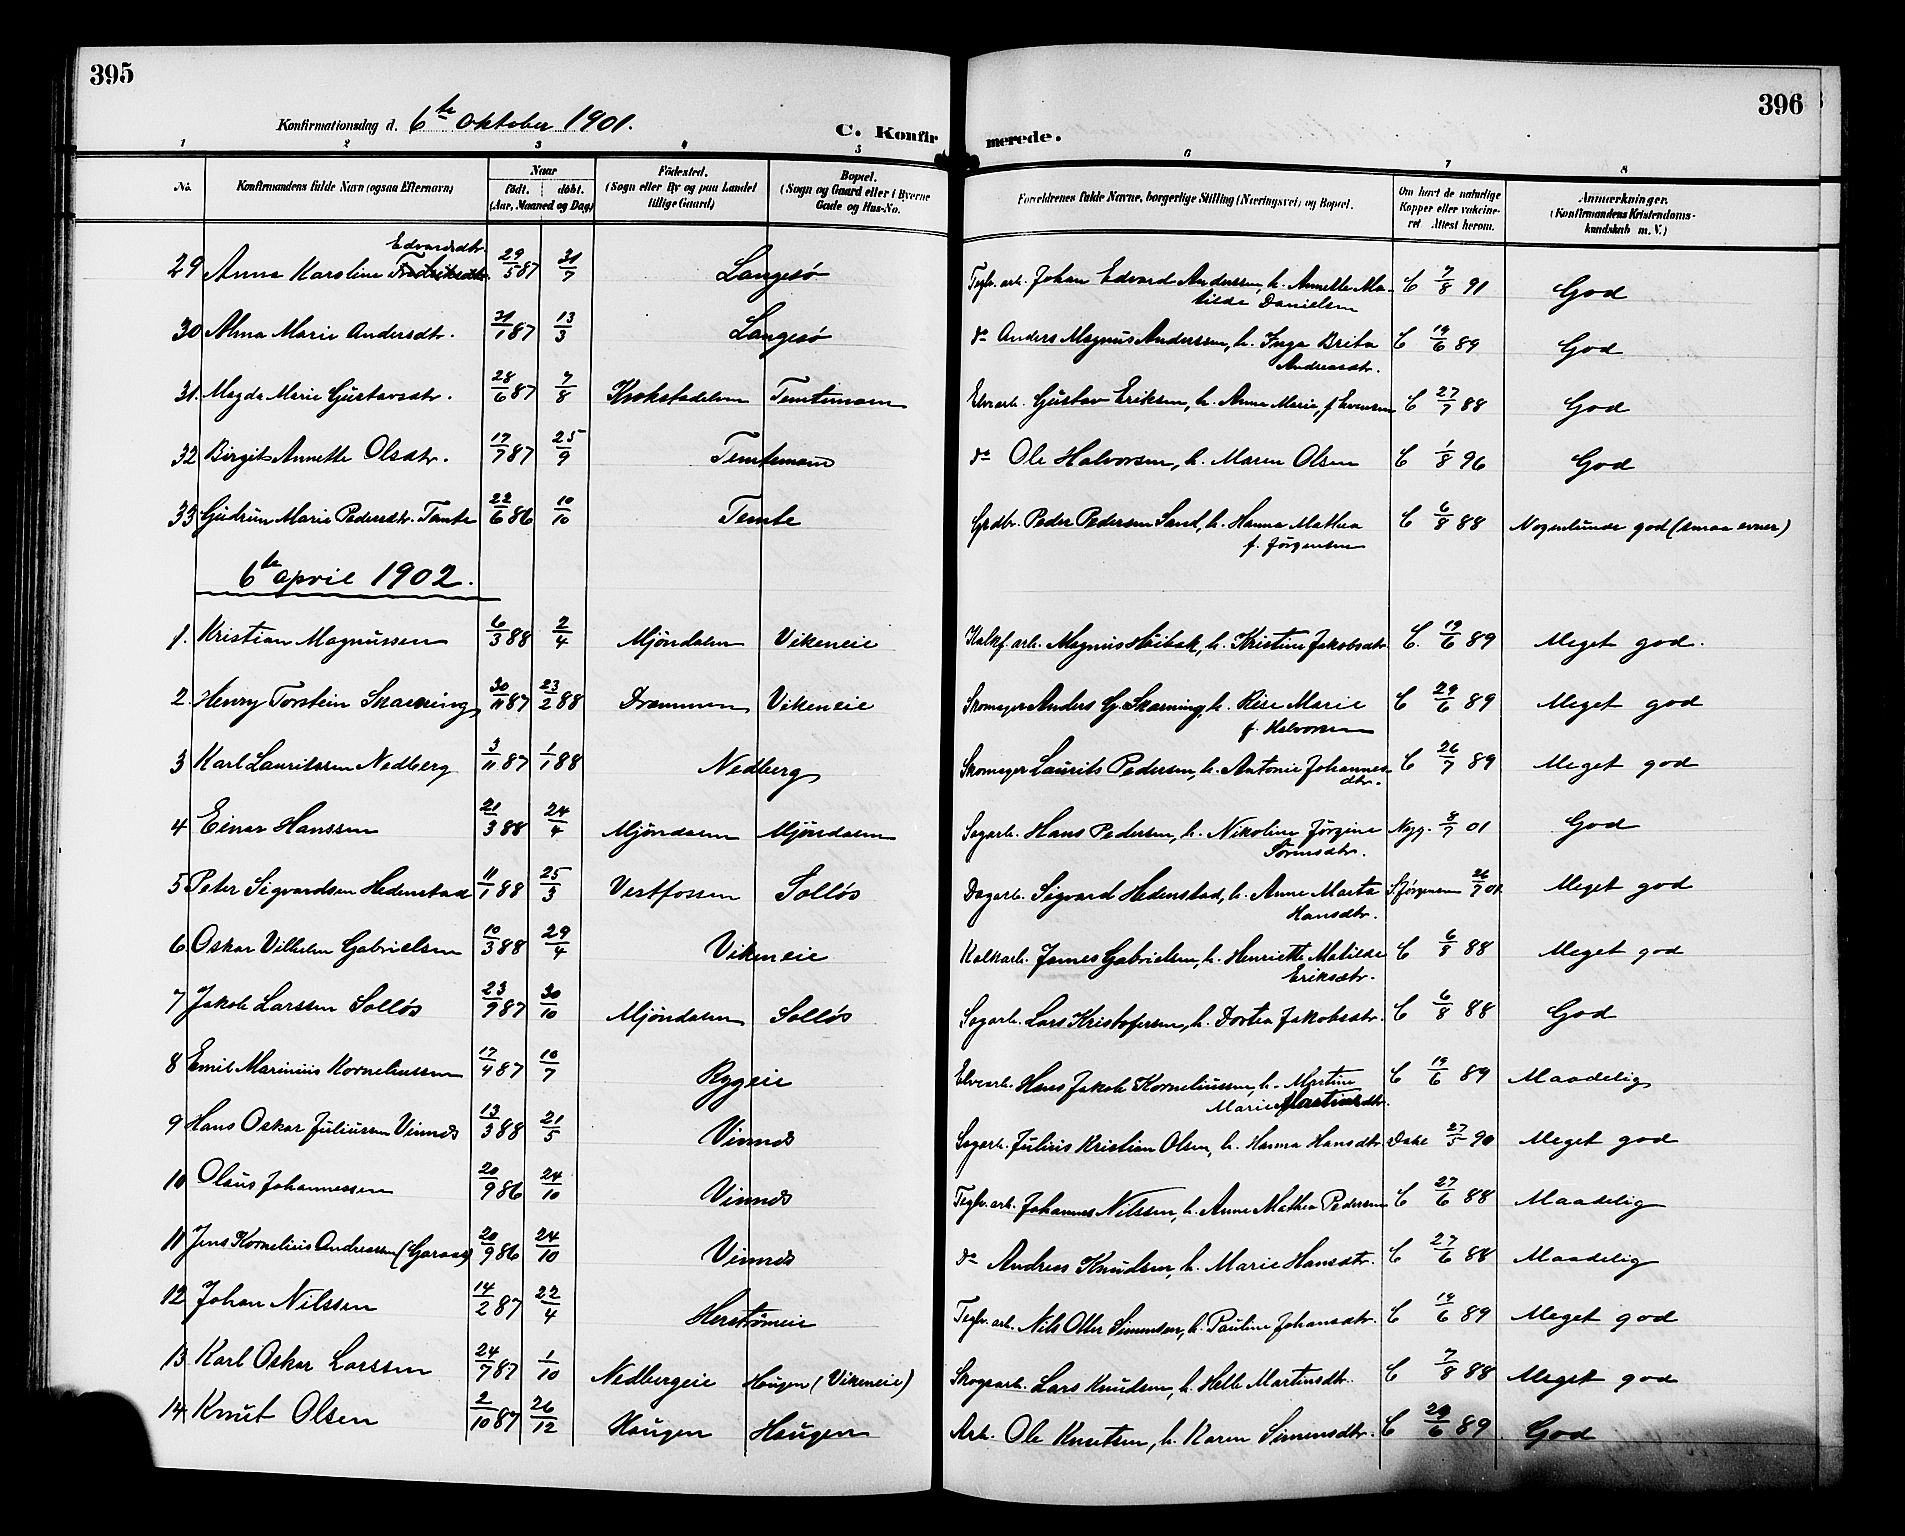 395
396
Konfirmationsdag d. 6te Oktober 1901.
C. Konfirmerede.
1 2 3 4 5 6 7 8
No. Konfirmandens fulde Navn (ogsaa Efternavn) Naar født. døbt. (Aar, Maaned og Dag) Fødested. (Sogn eller By og paa Landet tillige Gaard) Bopæl. (Sogn og Gaard eller i Byerne Gade og Hus-No. Forældrenes fulde Navne, borgerlige Stilling (Næringsvei) og Bopæl. Om havt de naturlige Kopper eller vakcineret Attest herom. Anmærkninger. (Konfirmandens Kristendomskundskab m. V.)
29 Anna Karoline Edvardsdtr. 29/5 87 31/7 Langesø Teglv. arb. Johan Edvard Anderssen, h. Annette Matilde Danielsen C 7/8 91 God
30 Alma Marie Andersdtr. 31/1 87 13/3 Langesø do Anders Magnus Anderssen, h. Inga Brita Andreasdtr. C 19/6 89 God
31. Magda Marie Gustavsdtr. 28/6 87 7/8 Krokstadelven Temtemoen Elvearb. Gustav Eriksen, h. Anna Marie, f. Evensen C 27/7 88 God
32 Birgit Annette Olsdtr. 17/7 87 25/9 Temtemoen do Ole Halvorsen, h. Maren Olsen C 1/8 96 God
33 Gudrun Marie Pedersdtr. Temte 22/6 86 10/10 Temte Grdbr. Peder Pedersen Sand, h. Hanna Mathea f. Jørgensen C 6/8 88 Nogenlunde god (smaa evner)
6te april 1902.
1. Kristian Magnussen 6/3 88 2/4 Mjøndalen Vikeneie Kalkf. arb. Magnus Høibak, h. Kristine Jakobsdtr. C. 19/6 89 Meget god.
2. Henry Torstein Skarning 30/11 87 23/2 88 Drammen Vikeneie Skomager Anders G. Skarning, h. Rise Marie f. Halvorsen C 29/6 89 Meget god
3 Karl Lauritssen Nedberg 3/11 87 1/1 88 Nedberg Skomager Laurits Pedersen, h. Antonie Johannesdtr. C 26/7 89 Meget god
4 Einar Hanssen 21/3 88 24/4 Mjøndalen Mjøndalen Sagarb. Hans Pedersen, h. Nikoline Jørgine Sørensdtr. Nyg. 8/7 01 God
5 Peter Sigvardsen Hedenstad 11/1 88 25/3 Vestfossen Solløs Dagarb. Sigvard Hedenstad, h. Anne Marta Hansdtr. S. Jørgensen 26/7 01. Meget god
6. Oskar Vilhelm Gabrielsen 10/3 88 29/4 Vikeneie Kalkarb. James Gabrielsen, h. Henriette Matilde Eriksdtr. C 6/8 88 Meget god
7 Jakob Larssen Solløs 23/9 87 30/10 Mjøndalen Solløs Sagarb. Lars Kristofersen, h. Dortea Jakobsdtr. C 6/8 88 God
8 Emil Marinius Korneliussen 17/4 87 10/7 Ryggeie Elvearb. Hans Jakob Korneliussen, h. Martine Marie Martinsdtr. C 19/6 89 Maadelig
9 Hans Oskar Juliussen Vinnes 13/3 88 21/5 Vinnes Sagarb. Julius Kristian Olsen, h. Hanna Hansdtr. Dahl 27/5 90 Meget god
10 Olaus Johannessen 20/9 86 24/10 Vinnes Teglv. arb. Johannes Nilssen, h. Anne Mathea Pedersen C 27/6 88 Maadelig
11 Jens Kornelius Andreassen (Garaas) 20/9 86 24/10 Vinnes do Andreas Knudsen, h. Marie Hansdtr. C 27/6 88 Maadelig
12 Johan Nilssen 14/2 87 22/4 Herstrømeie Teglv. arb. Nils Otter Simensen, h. Pauline Johansdtr. C 19/6 89 Meget god
13 Karl Oskar Larssen 24/7 87 1/10 Nedbergeie Haugen (Vikeneie) Skogsarb. Lars Knudsen, h. Helle Martinsdtr. C 7/8 88 Meget god
14 Knut Olsen 2/10 87 26/12 Haugen Haugen Arb. Ole Knutsen, h. Karen Simensdtr. C 29/6 89. God